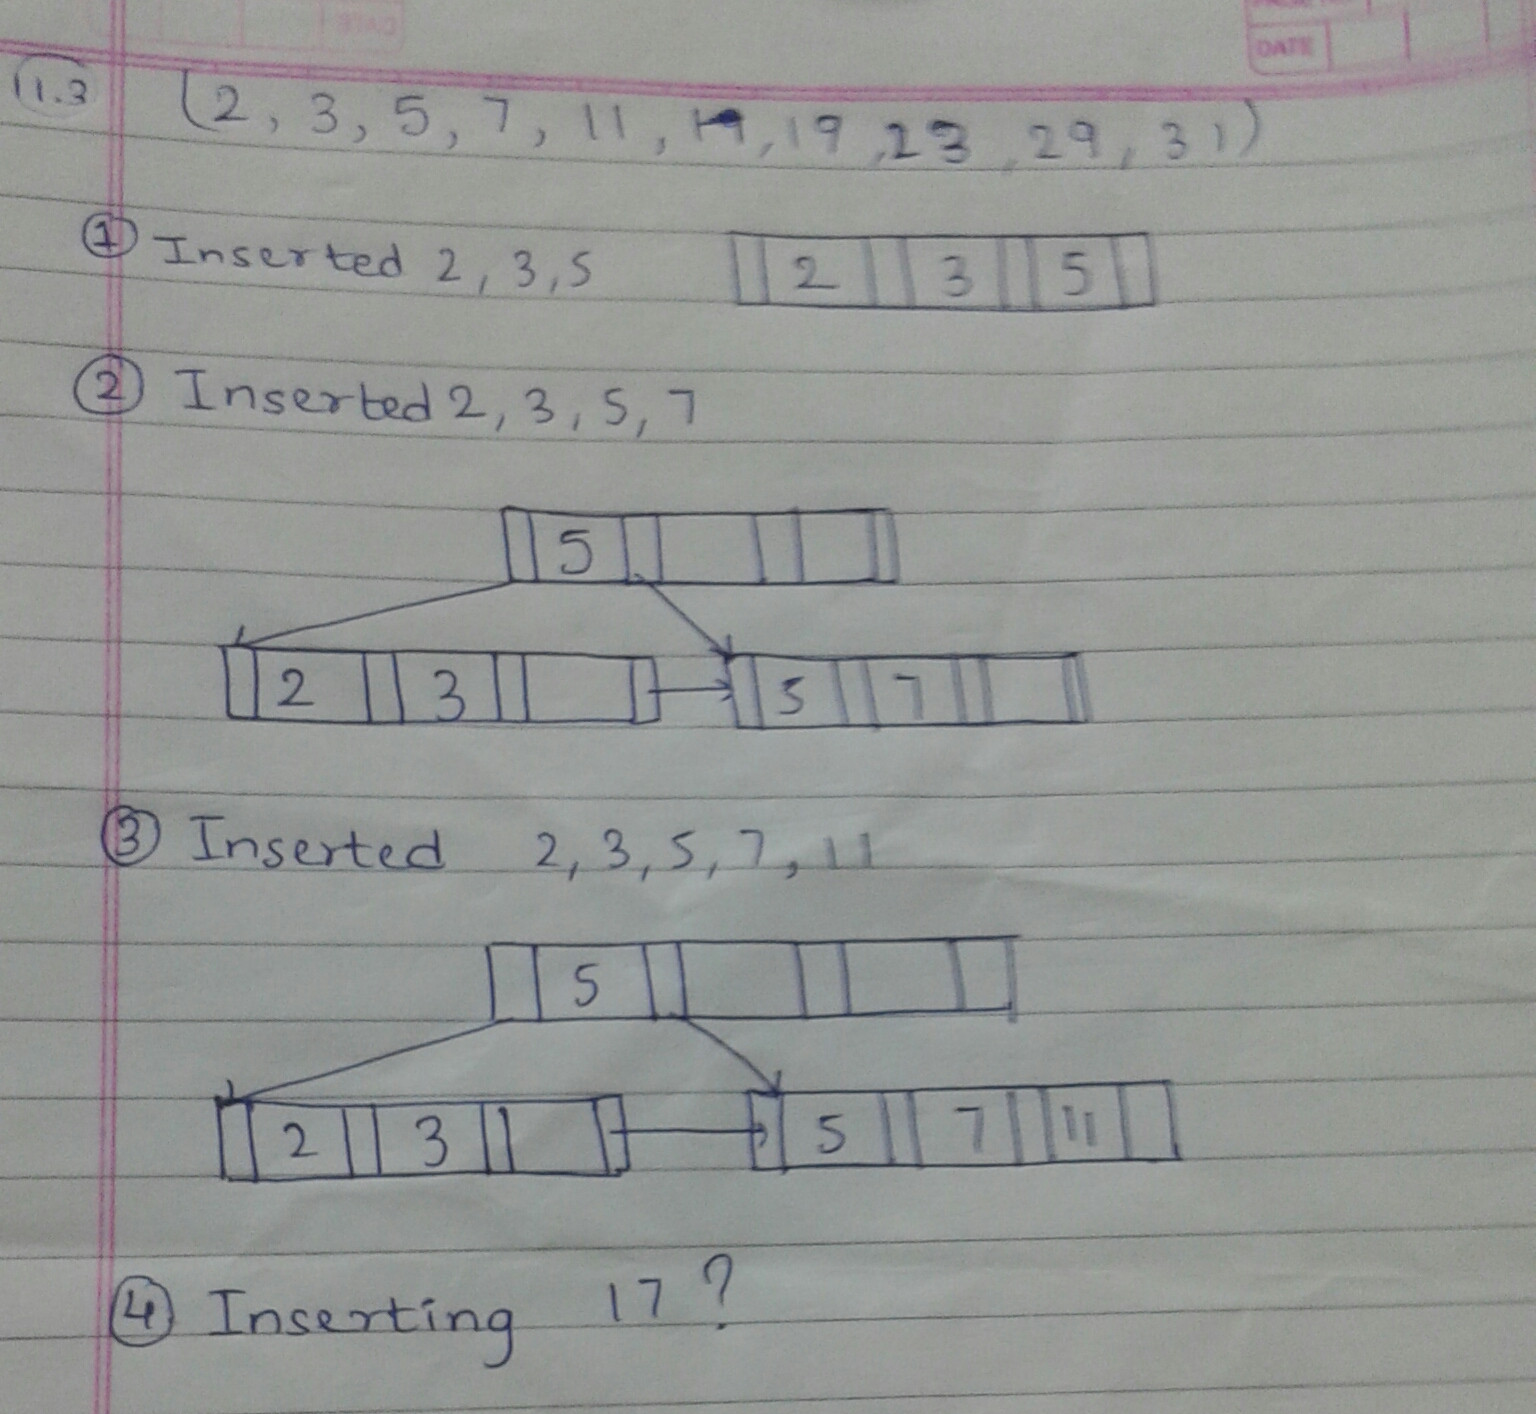 DATE
11.3 (2, 3, 5, 7, 11, 19, 23, 29, 31)
① Inserted 2, 3, 5
2 3 5
② Inserted 2, 3, 5, 7
5
2 3 5 7
③ Inserted 2, 3, 5, 7, 11
5
2 3 5 7 11
④ Inserting 17?